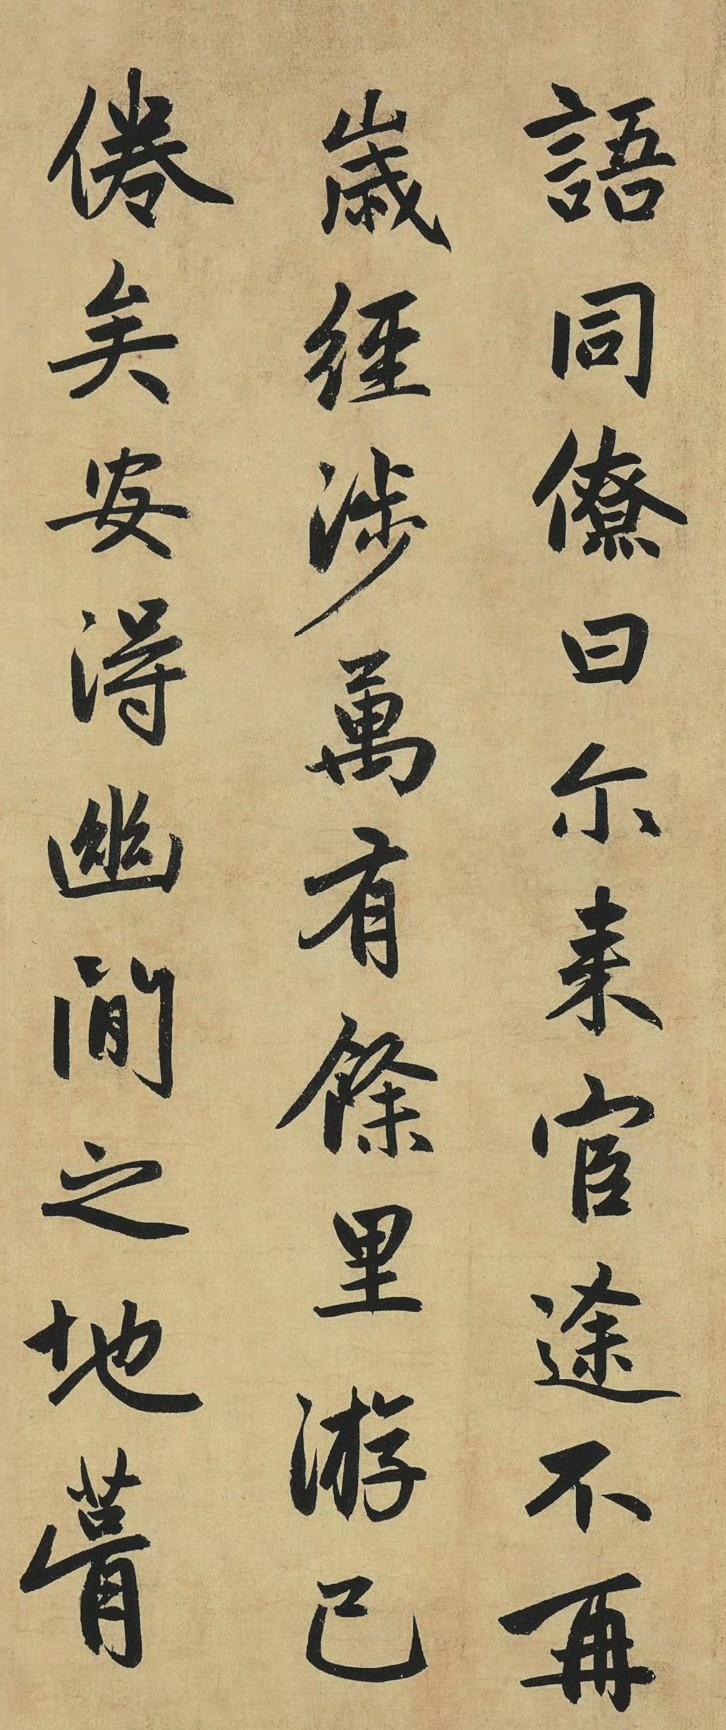 語同僚曰尓来宦途不再
歲經涉萬有餘里游已
倦矣安得幽閒之地